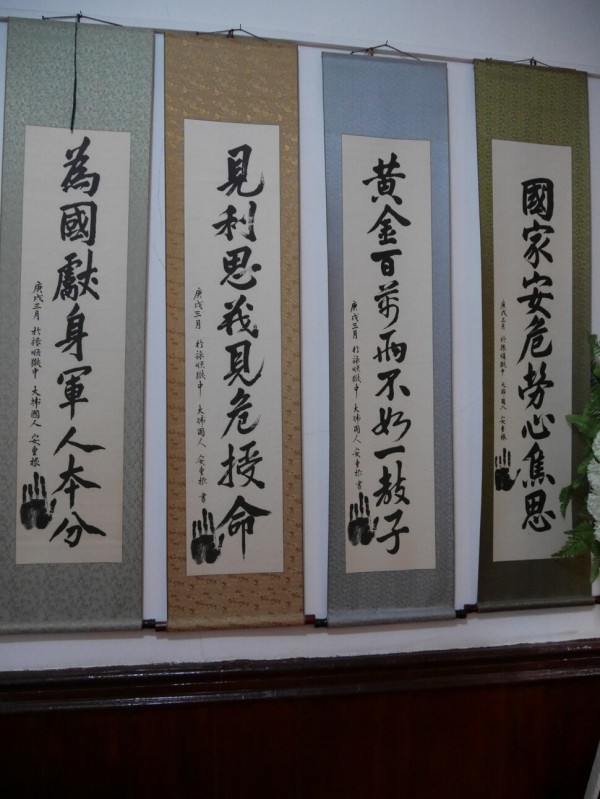 國家安危勞心焦思
庚戌三月 於旅順獄中 大韓國人 安重根
黃金百萬兩不如一敎子
庚戌三月 於旅順獄中 大韓國人 安重根 書
見利思義見危授命
庚戌三月 於旅順獄中 大韓國人 安重根 書
為國獻身軍人本分
庚戌三月 於旅順獄中 大韓國人 安重根